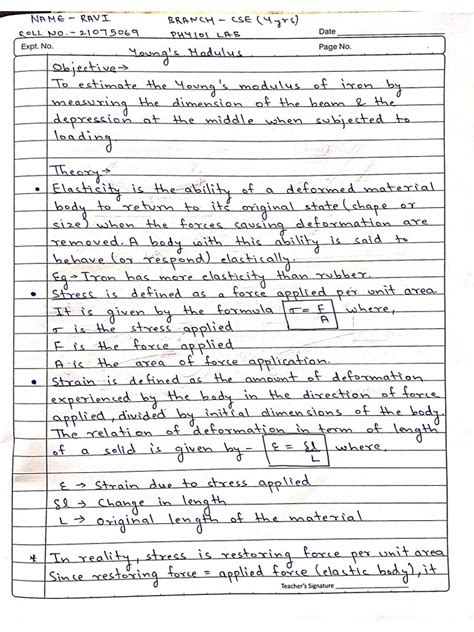 NAME - RAVI BRANCH - CSE (4 yrs)
ROLL NO. - 21075069 PHY101 LAB Date
Expt. No. Page No.
Young's Modulus
Objective →
To estimate the Young's modulus of iron by
measuring the dimension of the beam & the
depression at the middle when subjected to
loading
Theory →
• Elasticity is the ability of a deformed material
body to return to its original state (shape or
size) when the forces causing deformation are
removed. A body with this ability is said to
behave (or respond) elastically.
Eg → Iron has more elasticity than rubber.
• Stress is defined as a force applied per unit area.
It is given by the formula σ = F/A where,
σ is the stress applied
F is the force applied
A is the area of force application.
• Strain is defined as the amount of deformation
experienced by the body in the direction of force
applied, divided by initial dimensions of the body.
The relation of deformation in term of length
of a solid is given by - ε = δl/L where,
ε → Strain due to stress applied
δl → Change in length
L → original length of the material
* In reality, stress is restoring force per unit area
Since restoring force = applied force (elastic body), it
Teacher's Signature